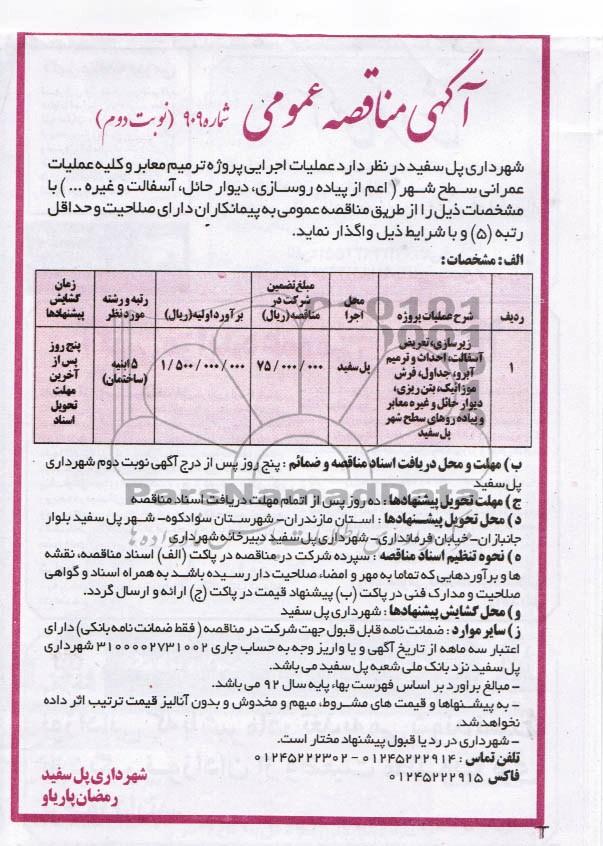 آگهی مناقصه عمومی شماره ۹۰۹ (نوبت دوم)
شهرداری پل سفید در نظر دارد عملیات اجرایی پروژه ترمیم معابر و کلیه عملیات
عمرانی سطح شهر ( اعم از پیاده روسازی، دیوار حائل، آسفالت و غیره ... ) با
مشخصات ذیل را از طریق مناقصه عمومی به پیمانکاران دارای صلاحیت و حداقل
رتبه (۵) و با شرایط ذیل واگذار نماید.
الف : مشخصات :
ردیف
شرح عملیات پروژه
محل
اجرا
مبلغ تضمین
شرکت در
مناقصه (ریال)
برآورد اولیه (ریال)
رتبه و رشته
مورد نظر
زمان
گشایش
پیشنهادها
۱
زیرسازی، تعریض
آسفالت، احداث و ترمیم
آبرو، جداول، فرش
موزائیک، بتن ریزی،
دیوار حائل و غیره معابر
و پیاده روهای سطح شهر
پل سفید
پل سفید
۷۵/۰۰۰/۰۰۰
۱/۵۰۰/۰۰۰/۰۰۰
۵ ابنیه
(ساختمان)
پنج روز
پس از
آخرین
مهلت
تحویل
اسناد
ب) مهلت و محل دریافت اسناد مناقصه و ضمائم : پنج روز پس از درج آگهی نوبت دوم شهرداری
پل سفید
ج) مهلت تحویل پیشنهادها : ده روز پس از اتمام مهلت دریافت اسناد مناقصه
د) محل تحویل پیشنهادها : استان مازندران - شهرستان سوادکوه - شهر پل سفید بلوار
جانبازان - خیابان فرمانداری - شهرداری پل سفید دبیرخانه شهرداری
ه) نحوه تنظیم اسناد مناقصه : سپرده شرکت در مناقصه در پاکت (الف) اسناد مناقصه، نقشه
ها و برآوردهایی که تماما به مهر و امضاء صلاحیت دار رسیده باشد به همراه اسناد و گواهی
صلاحیت و مدارک فنی در پاکت (ب) پیشنهاد قیمت در پاکت (ج) ارائه و ارسال گردد.
و) محل گشایش پیشنهادها : شهرداری پل سفید
ز) سایر موارد : ضمانت نامه قابل قبول جهت شرکت در مناقصه ( فقط ضمانت نامه بانکی) دارای
اعتبار سه ماهه از تاریخ آگهی و یا واریز وجه به حساب جاری ۳۱۰۰۰۰۲۷۳۱۰۰۲ شهرداری
پل سفید نزد بانک ملی شعبه پل سفید می باشد.
- مبالغ براورد بر اساس فهرست بهاء پایه سال ۹۲ می باشد.
- به پیشنهاها و قیمت های مشروط، مبهم و مخدوش و بدون آنالیز قیمت ترتیب اثر داده
نخواهد شد.
- شهرداری در رد یا قبول پیشنهاد مختار است.
تلفن تماس : ۰۱۲۴۵۲۲۲۹۱۴ - ۰۱۲۴۵۲۲۲۳۰۲
فاکس ۰۱۲۴۵۲۲۲۹۱۵
شهرداری پل سفید
رمضان پاریاو
ParsNamadData